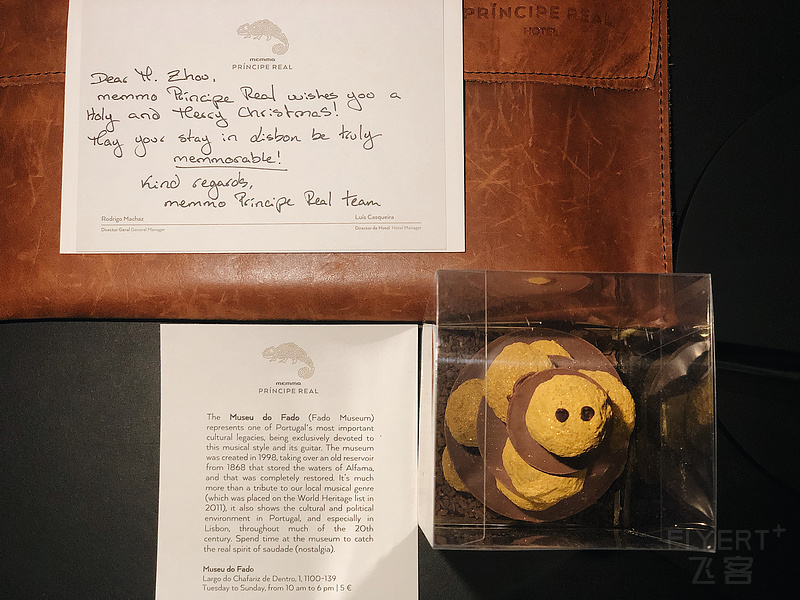 memmo
PRÍNCIPE REAL
Dear M. Zhou,
memmo Príncipe Real wishes you a
Holy and Merry Christmas!
May your stay in Lisbon be truly
memmorable!
Kind regards,
memmo Príncipe Real team
Rodrigo Machaz
Director Geral General Manager
Luís Casqueira
Director de Hotel Hotel Manager
PRÍNCIPE REAL
HOTEL
memmo
PRÍNCIPE REAL
The Museu do Fado (Fado Museum)
represents one of Portugal's most important
cultural legacies, being exclusively devoted to
this musical style and its guitar. The museum
was created in 1998, taking over an old reservoir
from 1868 that stored the waters of Alfama,
and that was completely restored. It's much
more than a tribute to our local musical genre
(which was placed on the World Heritage list in
2011), it also shows the cultural and political
environment in Portugal, and especially in
Lisbon, throughout much of the 20th
century. Spend time at the museum to catch
the real spirit of saudade (nostalgia).
Museu do Fado
Largo do Chafariz de Dentro, 1, 1100-139
Tuesday to Sunday, from 10 am to 6 pm | 5 €
FLYERT+
飞客